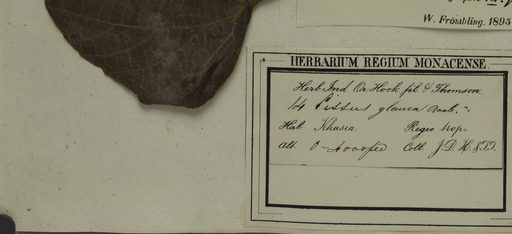 W. Froïbling. 1895
HERBARIUM REGIUM MONACENSE.
Herb. Ind. Or. Hook. fil. & Thomson
14 Cissus glauca Roxb.
Hab. Khasia Regio trop.
Alt. 0-4000 ped Coll. J. D. H. & T. T.